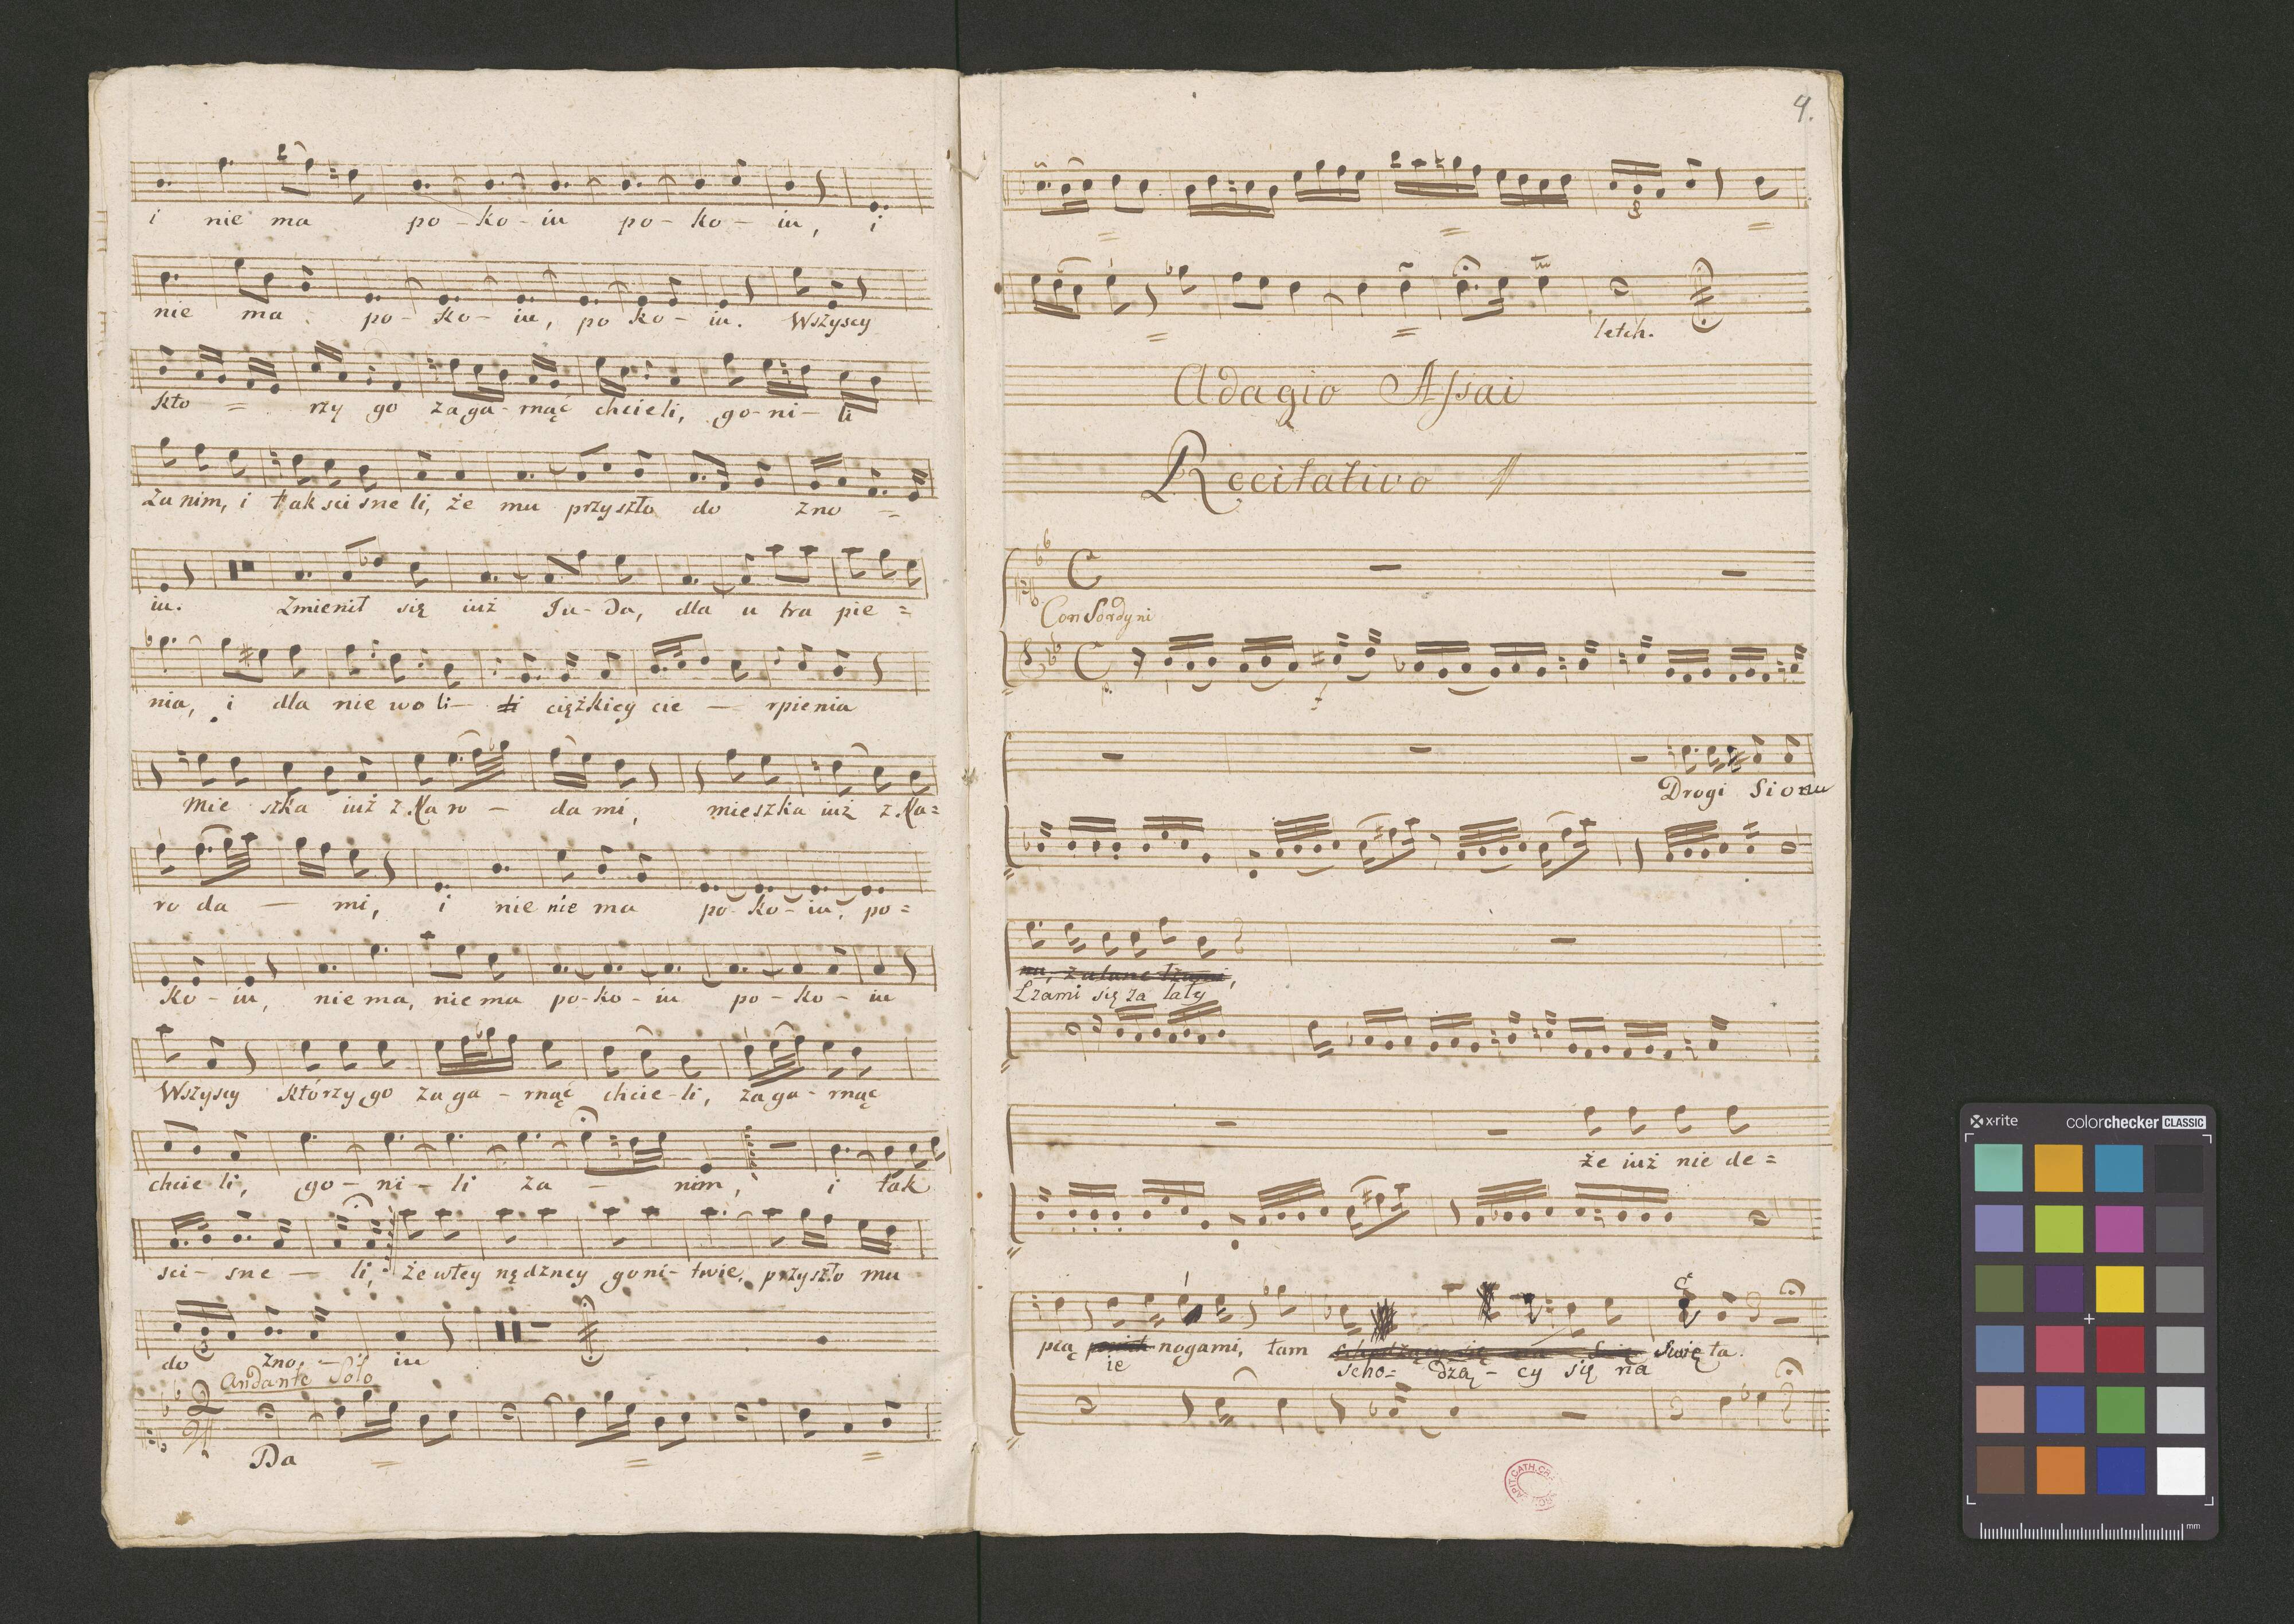 i nie ma po - ko - iu po - ko - iu, i
nie ma po - ko - iu, po ko - iu. Wszyscy
kto = rzy go zaga - rnąć chcieli, go - ni - li
za nim, i tak sci sne li, że mu przyszło do zno =
iu. Zmienił się iuż Ju - da, dla u tra pie =
nia, i dla nie wo li - ciężkiey cie - rpienia
Mie szka iuż z Na ro - da mi, mieszka iuż z Na =
ro da - mi, i nie nie ma po - ko - iu, po =
ko - iu, nie ma, nie ma po - ko - iu po - ko - iu
Wszyscy którzy go zaga - rnąć chcie - li, zaga - rnąć
chcie li, go - ni - li za - nim, i tak
sci - sne - li, że wtey nędzney goni - twie, przyszło mu
3
do zno - iu
Andante Solo
2
4
Da = = =
4.
3
= = =
= = letch.
Adagio Assai
Recitativo
Con Sordyni
p. f
Drogi Sionu
nu, zalane łzami,
Łzami się za lały
że iuż nie de =
pcą nogami, tam Swię ta.
ie scho = dzą - cy się na
CATH. CRA